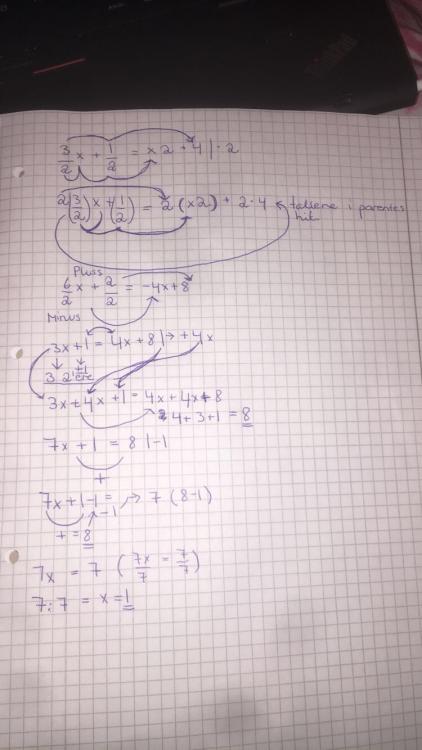 ThinkPad
3/2 x + 1/2 = x2 + 4 | · 2
2(3/2)x + (1/2) = 2(x2) + 2·4 tallene i parentes
hit
Pluss
6/2 x + 2/2 = -4x + 8
Minus
3x + 1 = 4x + 8 | → + 4x
3 2'ere +1
3x + 4x + 1 = 4x + 4x + 8
4 + 3 + 1 = 8
7x + 1 = 8 | -1
+
7x + 1 - 1 = → 7 (8-1)
-1
+ = 8
7x = 7 (7x/7 = 7/7)
7:7 = x = 1